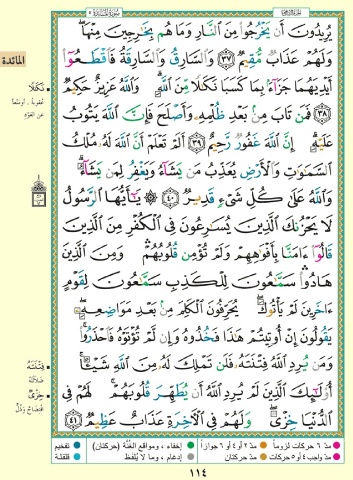 سُورَةُ المَائِدَةِ
يُرِيدُونَ أَن يَخْرُجُوا۟ مِنَ ٱلنَّارِ وَمَا هُم بِخَٰرِجِينَ مِنْهَا ۖ
وَلَهُمْ عَذَابٌ مُّقِيمٌ ٣٧ وَٱلسَّارِقُ وَٱلسَّارِقَةُ فَٱقْطَعُوٓا۟
أَيْدِيَهُمَا جَزَآءًۢ بِمَا كَسَبَا نَكَٰلًا مِّنَ ٱللَّهِ ۗ وَٱللَّهُ عَزِيزٌ حَكِيمٌ
٣٨ فَمَن تَابَ مِنۢ بَعْدِ ظُلْمِهِۦ وَأَصْلَحَ فَإِنَّ ٱللَّهَ يَتُوبُ
عَلَيْهِ ۗ إِنَّ ٱللَّهَ غَفُورٌ رَّحِيمٌ ٣٩ أَلَمْ تَعْلَمْ أَنَّ ٱللَّهَ لَهُۥ مُلْكُ
ٱلسَّمَٰوَٰتِ وَٱلْأَرْضِ يُعَذِّبُ مَن يَشَآءُ وَيَغْفِرُ لِمَن يَشَآءُ ۗ
وَٱللَّهُ عَلَىٰ كُلِّ شَىْءٍ قَدِيرٌ ٤٠ ۞ يَٰٓأَيُّهَا ٱلرَّسُولُ
لَا يَحْزُنكَ ٱلَّذِينَ يُسَٰرِعُونَ فِى ٱلْكُفْرِ مِنَ ٱلَّذِينَ
قَالُوٓا۟ ءَامَنَّا بِأَفْوَٰهِهِمْ وَلَمْ تُؤْمِن قُلُوبُهُمْ ۛ وَمِنَ ٱلَّذِينَ
هَادُوا۟ ۛ سَمَّٰعُونَ لِلْكَذِبِ سَمَّٰعُونَ لِقَوْمٍ
ءَاخَرِينَ لَمْ يَأْتُوكَ ۖ يُحَرِّفُونَ ٱلْكَلِمَ مِنۢ بَعْدِ مَوَاضِعِهِۦ ۖ
يَقُولُونَ إِنْ أُوتِيتُمْ هَٰذَا فَخُذُوهُ وَإِن لَّمْ تُؤْتَوْهُ فَٱحْذَرُوا۟ ۚ
وَمَن يُرِدِ ٱللَّهُ فِتْنَتَهُۥ فَلَن تَمْلِكَ لَهُۥ مِنَ ٱللَّهِ شَيْـًٔا ۚ
أُو۟لَٰٓئِكَ ٱلَّذِينَ لَمْ يُرِدِ ٱللَّهُ أَن يُطَهِّرَ قُلُوبَهُمْ ۚ لَهُمْ فِى
ٱلدُّنْيَا خِزْىٌ ۖ وَلَهُمْ فِى ٱلْءَاخِرَةِ عَذَابٌ عَظِيمٌ ٤١
المَائدة
نَكَٰلًا
عُقُوبةً ، أو مَنْعاً
عن العَوْدِ
فِتْنَتَهُ
ضَلالَتَه
خِزْيٌ
افتِضَاحٌ وذُلٌّ
مدّ ٦ حركات لزوماً مدّ ٢ أو ٤ أو ٦ جوازاً إخفاء ، ومواقع الغُنَّة (حركتان) تفخيم
مدّ واجب ٤ أو ٥ حركات مدّ حركتان إدغام ، وما لا يُلفَظ قلقلة
١١٤